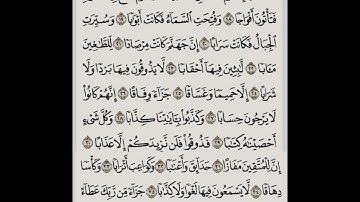 فَتَأْتُونَ أَفْوَاجًا ١٨ وَفُتِحَتِ السَّمَاءُ فَكَانَتْ أَبْوَابًا ١٩ وَسُيِّرَتِ
الْجِبَالُ فَكَانَتْ سَرَابًا ٢٠ إِنَّ جَهَنَّمَ كَانَتْ مِرْصَادًا ٢١ لِّلطَّاغِينَ
مَآبًا ٢٢ لَّابِثِينَ فِيهَا أَحْقَابًا ٢٣ لَّا يَذُوقُونَ فِيهَا بَرْدًا وَلَا
شَرَابًا ٢٤ إِلَّا حَمِيمًا وَغَسَّاقًا ٢٥ جَزَاءً وِفَاقًا ٢٦ إِنَّهُمْ كَانُوا
لَا يَرْجُونَ حِسَابًا ٢٧ وَكَذَّبُوا بِآيَاتِنَا كِذَّابًا ٢٨ وَكُلَّ شَيْءٍ
أَحْصَيْنَاهُ كِتَابًا ٢٩ فَذُوقُوا فَلَن نَّزِيدَكُمْ إِلَّا عَذَابًا ٣٠
إِنَّ لِلْمُتَّقِينَ مَفَازًا ٣١ حَدَائِقَ وَأَعْنَابًا ٣٢ وَكَوَاعِبَ أَتْرَابًا ٣٣ وَكَأْسًا
دِهَاقًا ٣٤ لَّا يَسْمَعُونَ فِيهَا لَغْوًا وَلَا كِذَّابًا ٣٥ جَزَاءً مِّن رَّبِّكَ عَطَاءً